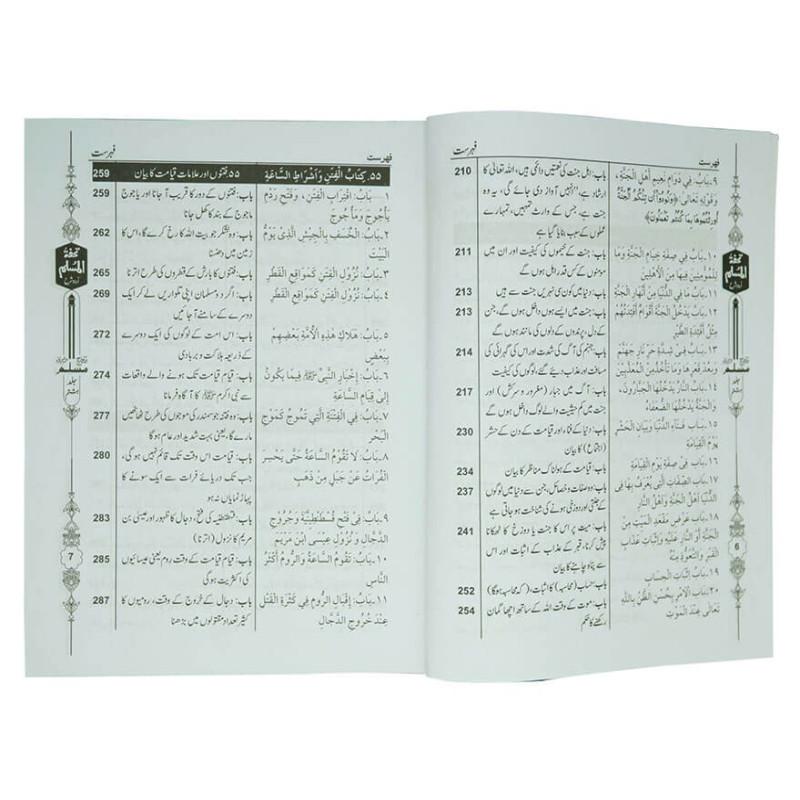 فہرست
فہرست
۹۔ بَابٌ: فِي دَوَامِ نَعِيمِ أَهْلِ الْجَنَّةِ،
وَقَوْلِهِ تَعَالَى: ﴿وَنُودُوٓا۟ أَن تِلْكُمُ ٱلْجَنَّةُ
أُورِثْتُمُوهَا بِمَا كُنتُمْ تَعْمَلُونَ﴾
باب: اہل جنت کی نعمتیں دائمی ہیں، اللہ تعالیٰ کا
ارشاد ہے: "انہیں آواز دی جائے گی، یہ وہ
جنت ہے، جس کے وارث تمہیں، تمہارے
عملوں کے سبب بنایا گیا ہے
210
۱۰۔ بَابٌ: فِي صِفَةِ خِيَامِ الْجَنَّةِ وَمَا
لِلْمُؤْمِنِينَ فِيهَا مِنَ الْأَهْلِينَ
باب: جنت کے خیموں کی کیفیت اور ان میں
مومنوں کے کس قدر اہل ہوں گے
211
۱۱۔ بَابُ مَا فِي الدُّنْيَا مِنْ أَنْهَارِ الْجَنَّةِ
باب: دنیا میں کون سی نہریں جنت سے ہیں
213
۱۲۔ بَابُ يَدْخُلُ الْجَنَّةَ أَقْوَامٌ أَفْئِدَتُهُمْ
مِثْلُ أَفْئِدَةِ الطَّيْرِ
باب: جنت میں ایسے لوگ داخل ہوں گے، جن
کے دل، پرندوں کے دلوں کی مانند ہوں گے
213
۱۳۔ بَابٌ: فِي شِدَّةِ حَرِّ نَارِ جَهَنَّمَ
وَبُعْدِ قَعْرِهَا وَمَا تَأْخُذُ مِنَ الْمُعَذَّبِينَ
باب: جہنم کی آگ کی شدت اور اس کی گہرائی کی
مسافت اور عذاب دیے گئے لوگوں کی کیفیت
214
۱۴۔ بَابُ النَّارُ يَدْخُلُهَا الْجَبَّارُونَ،
وَالْجَنَّةُ يَدْخُلُهَا الضُّعَفَاءُ
باب: آگ میں جبار (مغرور و سرکش) اور
جنت میں کم حیثیت والے لوگ داخل ہوں گے
217
۱۵۔ بَابُ فَنَاءِ الدُّنْيَا وَبَيَانِ الْحَشْرِ
يَوْمَ الْقِيَامَةِ
باب: دنیا کے فناء، اور قیامت کے دن کے حشر
(اجتماع) کا بیان
230
۱۶۔ بَابٌ: فِي صِفَةِ يَوْمِ الْقِيَامَةِ
باب: قیامت کے ہولناک مناظر کا بیان
234
۱۷۔ بَابُ الصِّفَاتِ الَّتِي يُعْرَفُ بِهَا فِي
الدُّنْيَا أَهْلُ الْجَنَّةِ وَأَهْلُ النَّارِ
باب: وہ صفات و خصائل، جن سے دنیا میں لوگوں
کے جنتی اور دوزخی ہونے کی شناخت ہو جاتی ہے
237
۱۸۔ بَابُ عَرْضِ مَقْعَدِ الْمَيِّتِ مِنَ
الْجَنَّةِ أَوِ النَّارِ عَلَيْهِ وَإِثْبَاتِ عَذَابِ
الْقَبْرِ وَالتَّعَوُّذِ مِنْهُ
باب: میت پر اس کا جنت یا دوزخ کا ٹھکانا
پیش کرنا، قبر کے عذاب کے اثبات اور اس
سے پناہ چاہنے کا بیان
241
۱۹۔ بَابُ إِثْبَاتِ الْحِسَابِ
باب: حساب (محاسبہ) کا اثبات، (کہ محاسبہ ہوگا)
252
۲۰۔ بَابُ الْأَمْرِ بِحُسْنِ الظَّنِّ بِاللهِ
تَعَالَى عِنْدَ الْمَوْتِ
باب: موت کے وقت اللہ کے ساتھ اچھا گمان
رکھنے کا حکم
254
6
فہرست
فہرست
۵۵۔ كِتَابُ الْفِتَنِ وَأَشْرَاطِ السَّاعَةِ
۵۵ فتنوں اور علامات قیامت کا بیان
259
۱۔ بَابُ: اقْتِرَابِ الْفِتَنِ، وَفَتْحِ رَدْمِ
يَأْجُوجَ وَمَأْجُوجَ
باب: فتنوں کے دور کا قریب آ جانا اور یاجوج
ماجوج کے بند کا کھل جانا
259
۲۔ بَابُ: الْخَسْفِ بِالْجَيْشِ الَّذِي يَؤُمُّ
الْبَيْتَ
باب: وہ لشکر جو بیت اللہ کا رخ کرے گا، اس کا
زمین میں دھنسنا
262
۳۔ بَابُ: نُزُولِ الْفِتَنِ كَمَوَاقِعِ الْقَطْرِ
باب: فتنوں کا بارش کے قطروں کی طرح اترنا
265
۴۔ بَابُ: نُزُولِ الْفِتَنِ كَمَوَاقِعِ الْقَطْرِ
باب: اگر دو مسلمان اپنی تلواریں لے کر ایک
دوسرے کے سامنے آ جائیں
269
۵۔ بَابُ: هَلَاكِ هٰذِهِ الْأُمَّةِ بَعْضِهِمْ
بِبَعْضٍ
باب: اس امت کے لوگوں کی ایک دوسرے
کے ذریعہ ہلاکت و بربادی
272
۶۔ بَابُ: إِخْبَارِ النَّبِيِّ ﷺ فِيمَا يَكُونُ
إِلَى قِيَامِ السَّاعَةِ
باب: قیام قیامت تک ہونے والے واقعات
سے نبی اکرم ﷺ کا آگاہ فرمانا
274
۷۔ بَابُ: فِي الْفِتْنَةِ الَّتِي تَمُوجُ كَمَوْجِ
الْبَحْرِ
باب: وہ فتنہ جو سمندر کی موجوں کی طرح ٹھاٹھیں
مارے گا، یعنی بہت شدید اور عام ہوگا
277
۸۔ بَابُ: لَا تَقُومُ السَّاعَةُ حَتَّى يَحْسِرَ
الْفُرَاتُ عَنْ جَبَلٍ مِنْ ذَهَبٍ
باب: قیامت اس وقت تک قائم نہیں ہوگی،
جب تک دریائے فرات سے ایک سونے کا
پہاڑ نمایاں نہ ہو
280
۹۔ بَابُ: فِي فَتْحِ قُسْطَنْطِينِيَّةَ وَخُرُوجِ
الدَّجَّالِ وَنُزُولِ عِيسَى ابْنِ مَرْيَمَ
باب: قسطنطنیہ کی فتح، دجال کا ظہور اور عیسیٰ بن
مریم کا نزول (اترنا)
283
۱۰۔ بَابُ: تَقُومُ السَّاعَةُ وَالرُّومُ أَكْثَرُ
النَّاسِ
باب: قیام قیامت کے وقت روم یعنی عیسائیوں
کی اکثریت ہوگی
285
۱۱۔ بَابُ: إِقْبَالِ الرُّومِ فِي كَثْرَةِ الْقَتْلِ
عِنْدَ خُرُوجِ الدَّجَّالِ
باب: دجال کے خروج کے وقت، رومیوں کا
کثیر تعداد مقتولوں میں بڑھنا
287
تحفۃ
المسلم
مسلم
جلد
ہشتم
7